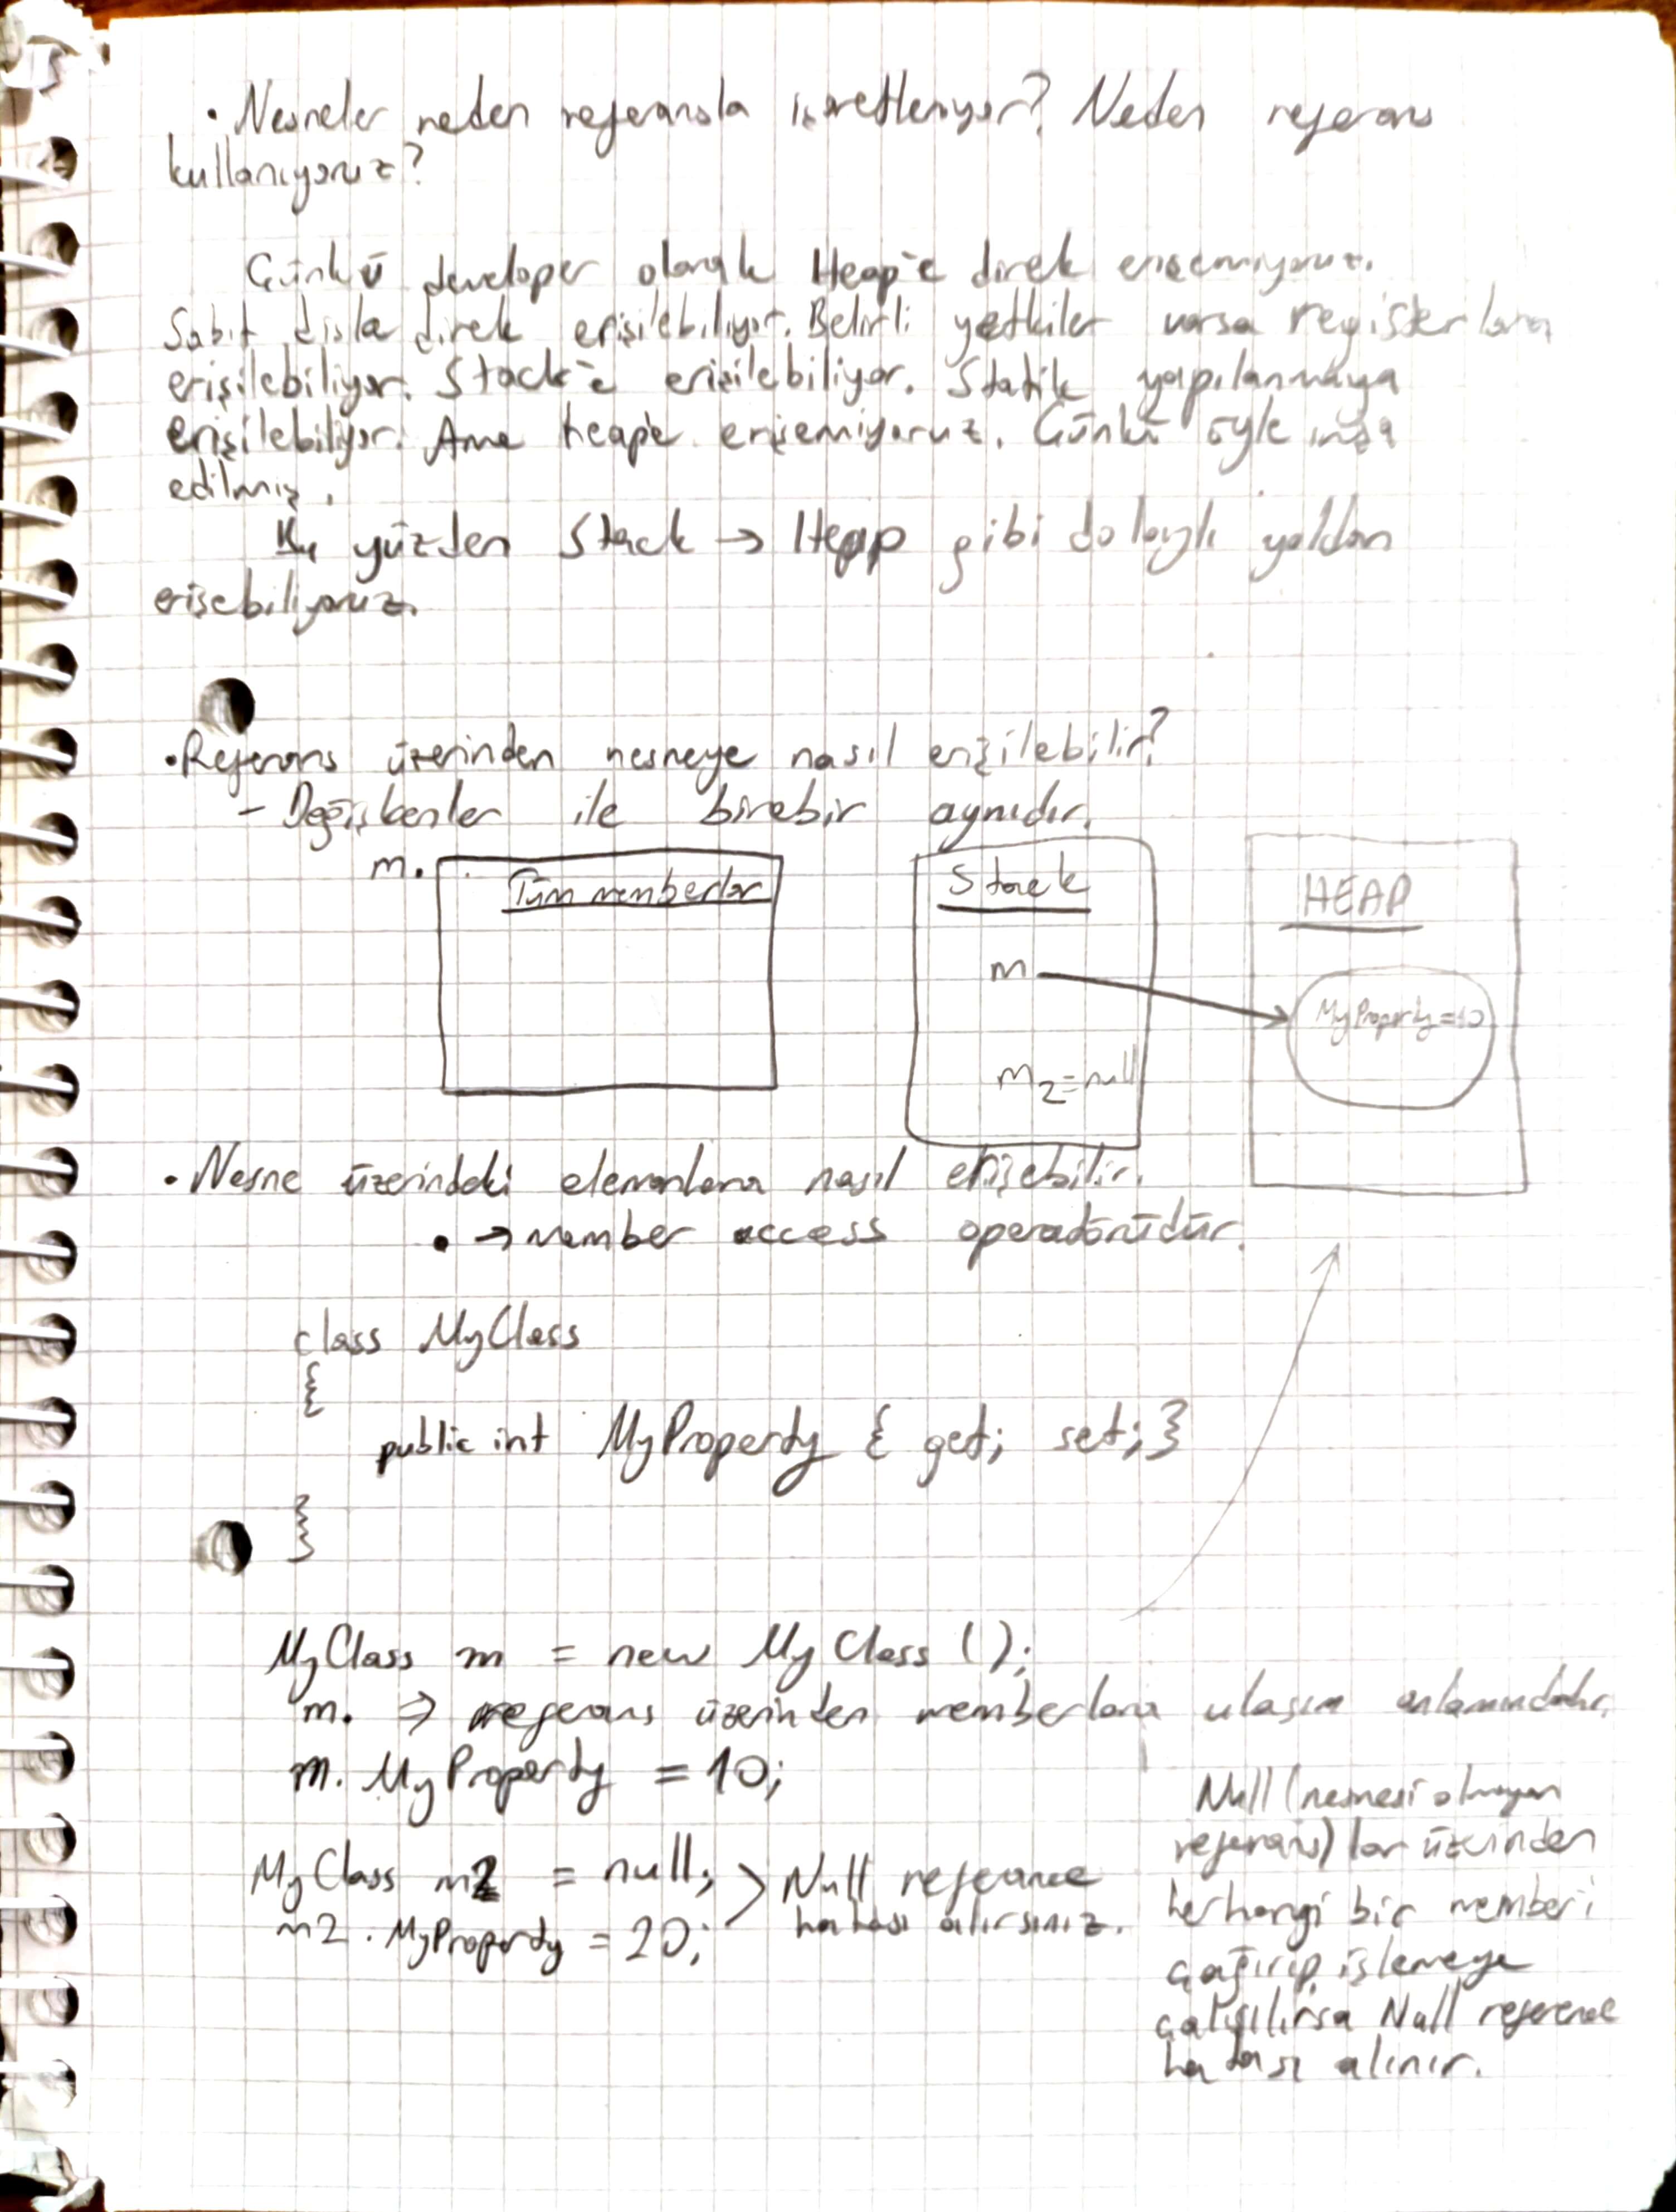 • Nesneler neden referansla işaretleniyor? Neden referans
kullanıyoruz?
Çünkü developer olarak Heap'e direk erişemiyoruz.
Sabit diske direk erişilebiliyor. Belirli yetkiler varsa registerlara
erişilebiliyor. Stack'e erişilebiliyor. Statik yapılanmaya
erişilebiliyor. Ama heape erişemiyoruz. Çünkü öyle inşa
edilmiş.
Bu yüzden Stack → Heap gibi dolaylı yoldan
erişebiliyoruz.
• Referans üzerinden nesneye nasıl erişilebilir?
- Değişkenler ile birebir aynıdır.
m.
Tüm memberlar
Stack
m
m2=null
HEAP
MyProperty=10
• Nesne üzerindeki elemanlara nasıl erişebilir.
• → member access operatörüdür.
class MyClass
{
public int MyProperty { get; set; }
}
MyClass m = new MyClass ();
m. ⇒ referans üzerinden memberlara ulaşım anlamındadır.
m. MyProperty = 10;
MyClass m2 = null;
m2. MyProperty = 20;
> Null referance
hatası alırsınız.
Null (nesnesi olmayan
referans) lar üzerinden
herhangi bir member'i
çağırıp işlemeye
çalışılırsa Null reference
hatası alınır.